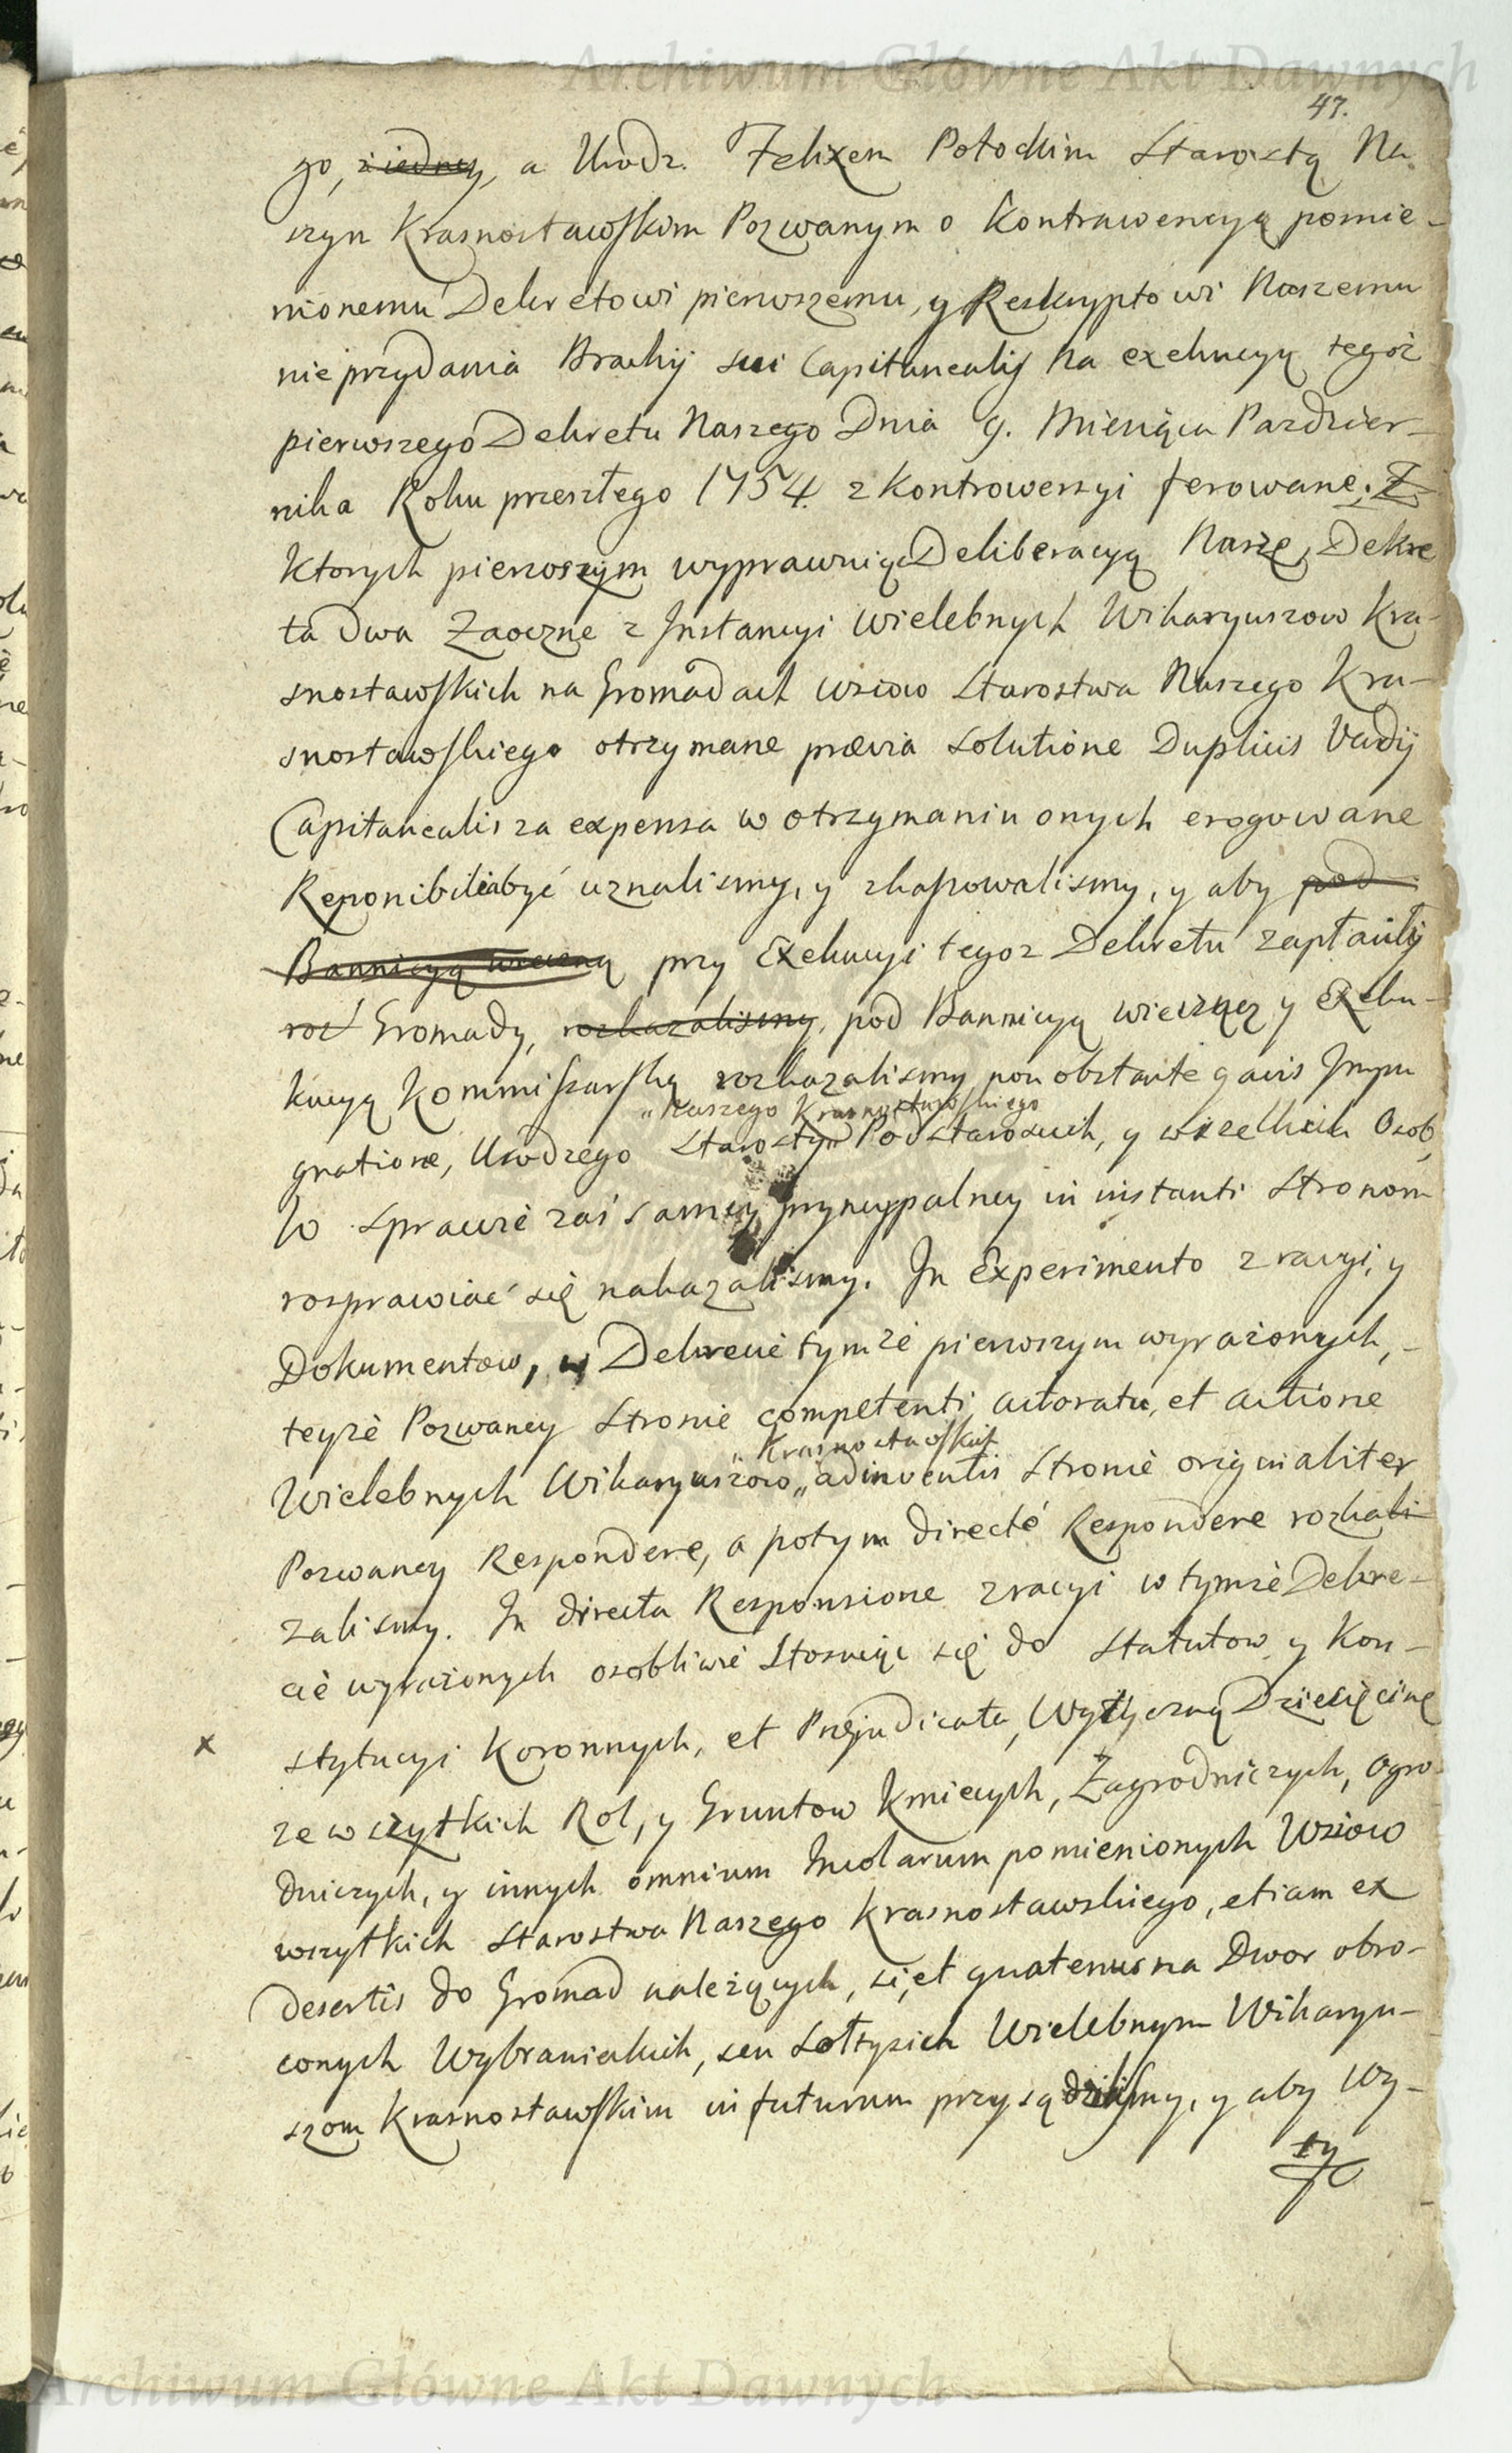 Archiwum Główne Akt Dawnych
47.
go, z iedney, a Urodz. Felixem Potockim Starostą Na-
szym Krasnostawskim Pozwanym o Kontrawencyą pomie-
nionemu Dekretowi pierwszemu, y Reskryptowi Naszemu
nieprzydania Brachij sui Capitanealis na exekucyą tegoż
pierwszego Dekretu Naszego Dnia 9. Miesiąca Pazdzier-
nika Roku przeszłego 1754. z Kontrowersyi ferowane. Z
Ktorych pierwszym wyprawuiąc Deliberacyą Naszę, Dekre
ta dwa Zaoczne z Instancyi Wielebnych Wikaryuszow Kra-
snostawskich na Gromadach wsiow Starostwa Naszego Kra-
snostawskiego otrzymane prævia solutione Duplicis Vadij
Capitanealis za expensa w otrzymaniu onych erogowane
Reponibilia być uznalismy, y skassowalismy, y aby pod
Bannicyą wieczną przy Exekucyi tegoz Dekretu zapłaciły
roz Gromady, rozkazalismy, pod Bannicyą wieczną y Exeku-
kucyą Kommissarską rozkazalismy non obstante quavis Impu
„Naszego Krasnostawskiego
gnatione, Urodzego Starosty Podstaroscich, y wszelkich Osob,
W Sprawie zaś samey pryncypalney in instanti Stronom
rosprawiać się nakazalismy. In Experimento z racyi, y
Dokumentow, w Dekrecie tymże pierwszym wyrażonych,
teyże Pozwaney Stronie competenti actoratu, et actione
„Krasnostawskich
Wielebnych Wikaryuszow „adinventis Stronie originaliter
Pozwaney Respondere, a potym directé Respondere rozkali
zalismy. In directa Responsione z racyi w tymże Dekre-
cie wyrażonych osobliwie Stosuiąc się do Statutow y Kon-
x stytucyi Koronnych, et Præjudicata, Wytyczną Dziesięcinę
ze wszytkich Rol, y Gruntow Kmiecych, Zagrodniczych, ogro-
dniczych, y innych omnium Incolarum pomienionych Wsiow
wszytkich Starostwa Naszego Krasnostawskiego, etiam ex
Desertis do Gromad należących, si, et quatenus na Dwor obro-
conych Wybranieckich, seu Sołtysich Wielebnym Wikaryu-
szom Krasnostawskim in futurum przysądzilismy, y aby Wy-
ty
Archiwum Główne Akt Dawnych